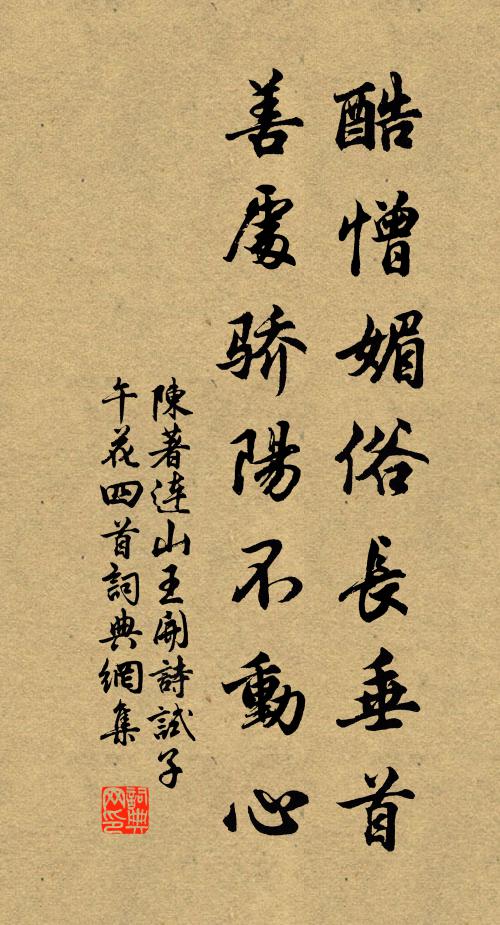 酷憎媚俗長垂首
善處骄陽不動心
陳著連山王開詩試子
午花四首詞典網集
詞典
网印